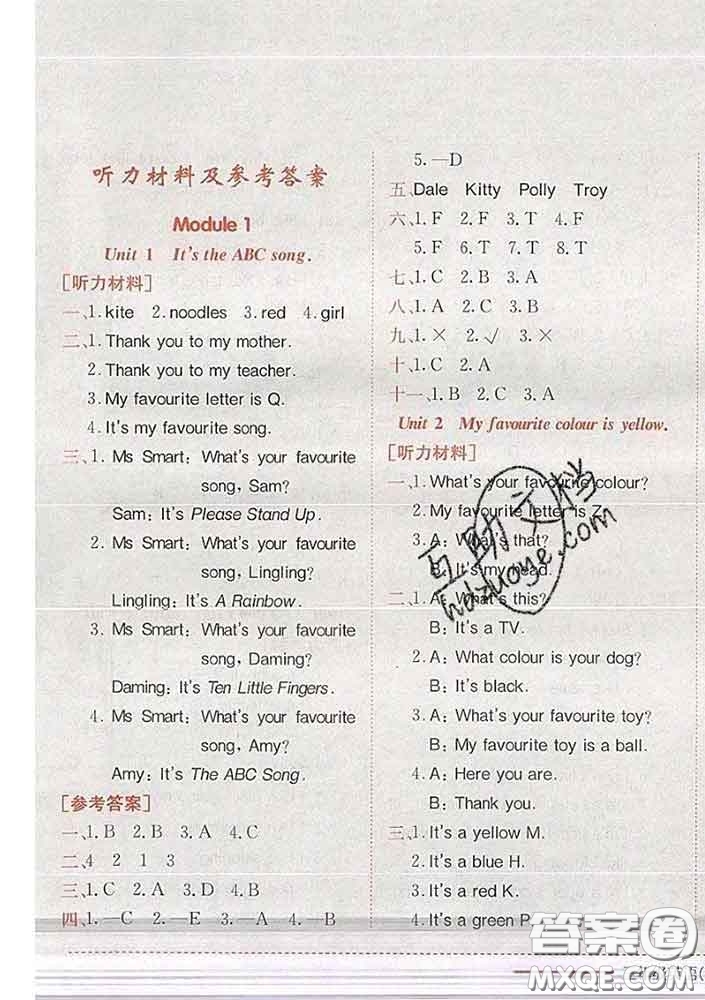 听力材料及参考答案
Module 1
Unit 1 It's the ABC song.
[听力材料]
一、1. kite 2. noodles 3. red 4. girl
二、1. Thank you to my mother.
2. Thank you to my teacher.
3. My favourite letter is Q.
4. It's my favourite song.
三、1. Ms Smart: What's your favourite
song, Sam?
Sam: It's Please Stand Up.
2. Ms Smart: What's your favourite
song, Lingling?
Lingling: It's A Rainbow.
3. Ms Smart: What's your favourite
song, Daming?
Daming: It's Ten Little Fingers.
4. Ms Smart: What's your favourite
song, Amy?
Amy: It's The ABC Song.
[参考答案]
一、1. B 2. B 3. A 4. C
二、4 2 1 3
三、1. C 2. A 3. D 4. B
四、1. —C 2. —E 3. —A 4. —B
5. —D
五、Dale Kitty Polly Troy
六、1. F 2. F 3. T 4. F
5. F 6. T 7. T 8. T
七、1. C 2. B 3. A
八、1. C 2. A 3. B
九、1. × 2. √ 3. ×
十、1. C 2. A
十一、1. B 2. C 3. A
Unit 2 My favourite colour is yellow.
[听力材料]
一、1. What's your favourite colour?
2. My favourite letter is Z.
3. A: What's that?
B: It's my head.
二、1. A: What's this?
B: It's a TV.
2. A: What colour is your dog?
B: It's black.
3. A: What's your favourite toy?
B: My favourite toy is a ball.
4. A: Here you are.
B: Thank you.
三、1. It's a yellow M.
2. It's a blue H.
3. It's a red K.
4. It's a green P.
互助文档
hdzuoye.com
答案圈
MXQE.COM